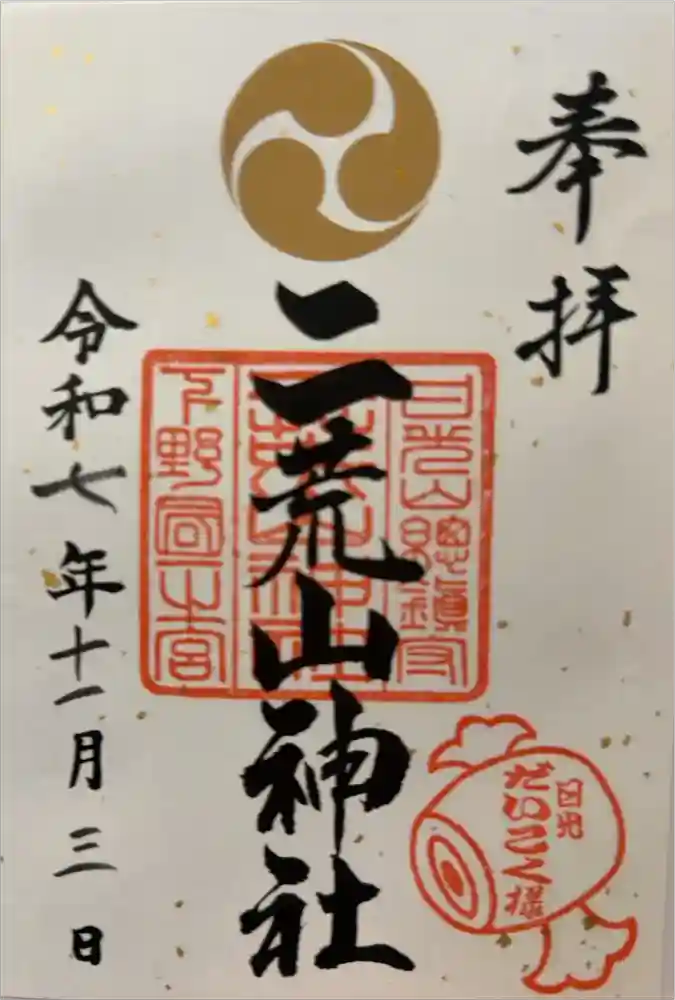 奉拝
二荒山神社
日光山總鎮守
二荒山神社
下野國一之宮
日光
だいこく様
令和七年十一月三日